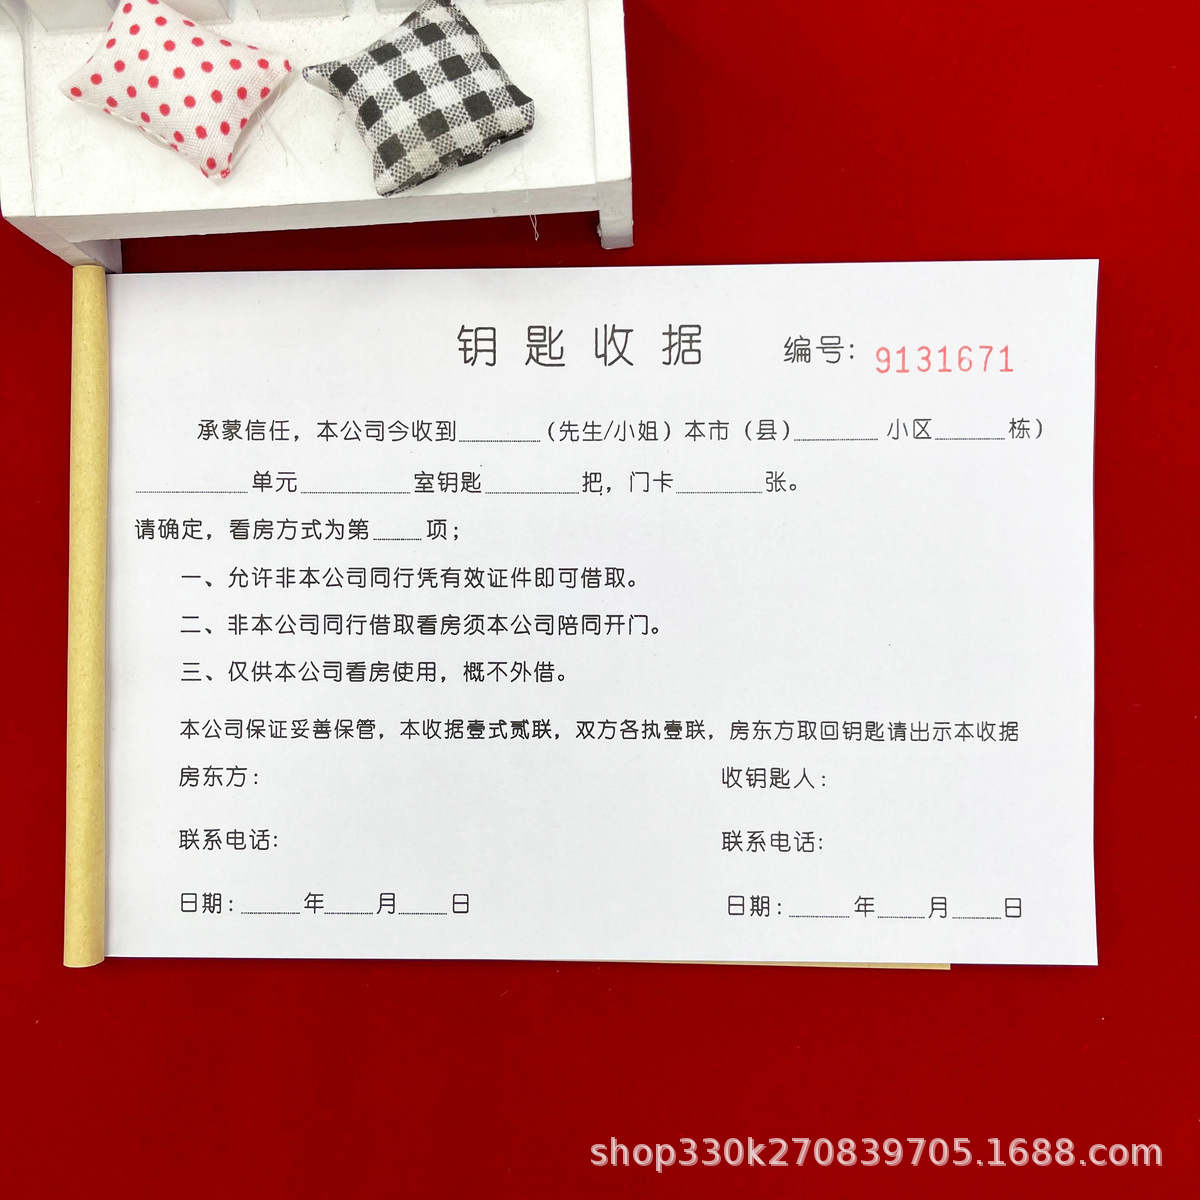 钥匙收据 编号：9131671
承蒙信任，本公司今收到______（先生/小姐）本市（县）______ 小区______栋）
______单元______室钥匙______把，门卡______张。
请确定，看房方式为第____项；
一、允许非本公司同行凭有效证件即可借取。
二、非本公司同行借取看房须本公司陪同开门。
三、仅供本公司看房使用，概不外借。
本公司保证妥善保管，本收据壹式贰联，双方各执壹联，房东方取回钥匙请出示本收据
房东方： 收钥匙人：
联系电话： 联系电话：
日期：____年____月____日 日期：____年____月____日
shop330k270839705.1688.com